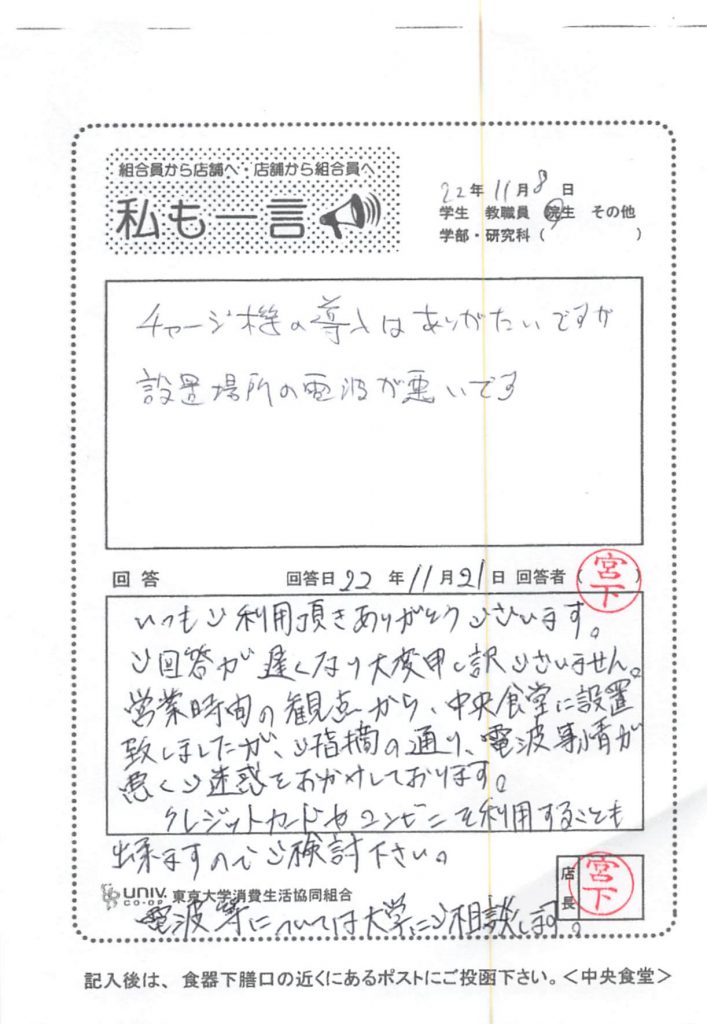 組合員から店舗へ・店舗から組合員へ
私も一言
22年 11月 8日
学生 教職員 院生 その他
学部・研究科( )
チャージ機の導入はありがたいですが
設置場所の電波が悪いです
回答 回答日 22 年 11月 21日 回答者(宮下)
いつもご利用頂きありがとうございます。
ご回答が遅くなり大変申し訳ございません。
営業時間の観点から、中央食堂に設置
致しましたが、ご指摘の通り、電波事情が
悪くご迷惑をおかけしております。
クレジットカードやコンビニを利用することも
出来ますのでご検討下さい。
UNIV. CO-OP 東京大学消費生活協同組合
店長 宮下
電波等については大学にご相談します。
記入後は、食器下膳口の近くにあるポストにご投函下さい。＜中央食堂＞